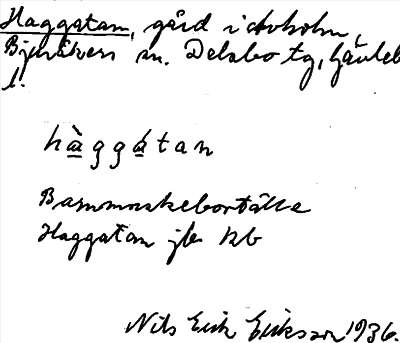 Haggatan, gård i Avholm,
Bjuråkers sn. Delsbo tg, Gävleb
l.
hàggátan
Barnmorskebortälle
Haggatan jfr kb
Nils Erik Eriksson 1936.